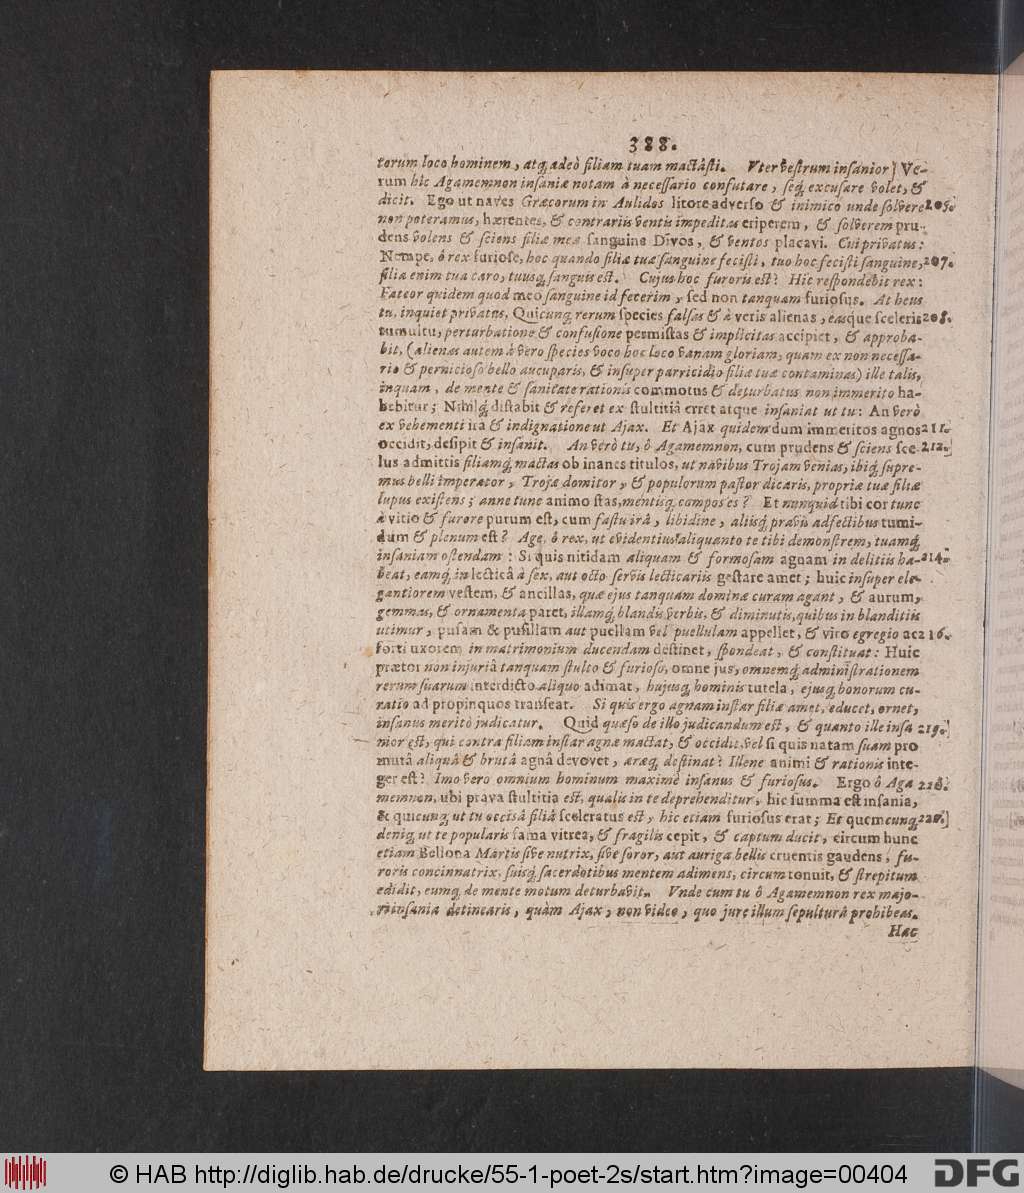 388.
torum loco hominem, atq́; adeò filiam tuam mactâsti. Vter vestrum insanior] Ve-
rum hîc Agamemnon insaniæ notam à necessario confutare, seq́; excusare volet, &
dicit. Ego ut naves Græcorum in Aulidos litore adverso & inimico unde solvere 205.
non poteramus, hærentes, & contrariis ventis impeditas eriperem, & solverem pru-
dens volens & sciens filiæ meæ sanguine Divos, & ventos placavi. Cui privatus:
Nempe, ô rex furiose, hoc quando filiæ tuæ sanguine fecisti, tuo hoc fecisti sanguine, 207.
filiæ enim tua caro, tuusq́; sanguis est. Cujus hoc furoris est? Hic respondebit rex:
Fateor quidem quod meo sanguine id fecerim, sed non tanquam furiosus. At heus
tu, inquiet privatus, Quicunq; rerum species falsas & à veris alienas, easque sceleris 208.
tumultu, perturbatione & confusione permistas & implicitas accipiet, & approba-
bit, (alienas autem à vero species voco hoc loco vanam gloriam, quam ex non necessa-
rio & pernicioso bello aucuparis, & insuper parricidio filiæ tuæ contaminas) ille talis,
inquam, de mente & sanitate rationis commotus & deturbatus non immerito ha-
bebitur; Nihilq́; distabit & referet ex stultitiâ erret atque insaniat ut tu: An verò
ex vehementi ira & indignatione ut Ajax. Et Ajax quidem dum immeritos agnos 211.
occidit, desipit & insanit. An verò tu, ô Agamemnon, cum prudens & sciens sce- 212.]
lus admittis filiamq́; mactas ob inanes titulos, ut navibus Trojam venias, ibiq́; supre-
mus belli imperator, Trojæ domitor, & populorum pastor dicaris, propriæ tuæ filiæ
lupus existens; anne tunc animo stas, mentisq́; compos es? Et nunquid tibi cor tunc
à vitio & furore purum est, cum fastu irâ, libidine, aliisq́; pravis adfectibus tumi-
dum & plenum est? Age, ô rex, ut evidentius aliquanto te tibi demonstrem, tuamq́;
insaniam ostendam: Si quis nitidam aliquam & formosam agnam in delitiis ha- 214.
beat, eamq́; in lecticâ à sex, aut octo servis lecticariis gestare amet; huic insuper ele-
gantiorem vestem, & ancillas, quæ ejus tanquam dominæ curam agant, & aurum,
gemmas, & ornamenta paret, illamq́; blandis verbis, & diminutis, quibus in blanditiis
utimur, pusam & pusillam aut puellam vel puellulam appellet, & viro egregio ac 216.
forti uxorem in matrimonium ducendam destinet, spondeat, & constituat: Huic
prætor non injuriâ tanquam stulto & furioso, omne jus, omnemq́; administrationem
rerum suarum interdicto aliquo adimat, hujusq́; hominis tutela, ejusq́; bonorum cu-
ratio ad propinquos transeat. Si quis ergo agnam instar filiæ amet, educet, ornet,
insanus meritò judicatur. Quid quæso de illo judicandum est, & quanto ille insa 219.]
nior est, qui contra filiam instar agnæ mactat, & occidit, vel si quis natam suam pro
mutâ aliquâ & brutâ agnâ devovet, aræq́; destinat? Illene animi & rationis inte-
ger est? Imo vero omnium hominum maximè insanus & furiosus. Ergo ô Aga 220.
memnon, ubi prava stultitia est, qualis in te deprehenditur, hic summa est insania,
& quicunq; ut tu occisâ filiâ sceleratus est, hic etiam furiosus erat; Et quemcunq; 220.]
deniq; ut te popularis fama vitrea, & fragilis cepit, & captum ducit, circum hunc
etiam Bellona Martis sive nutrix, sive soror, aut auriga bellis cruentis gaudens, fu-
roris concinnatrix, suisq́; sacerdotibus mentem adimens, circum tonuit, & strepitum
edidit, eumq́; de mente motum deturbavit. Vnde cum tu ô Agamemnon rex majo-
ri insania detinearis, quàm Ajax, non video, quo jure illum sepulturâ prohibeas.
Hac
© HAB http://diglib.hab.de/drucke/55-1-poet-2s/start.htm?image=00404
DFG